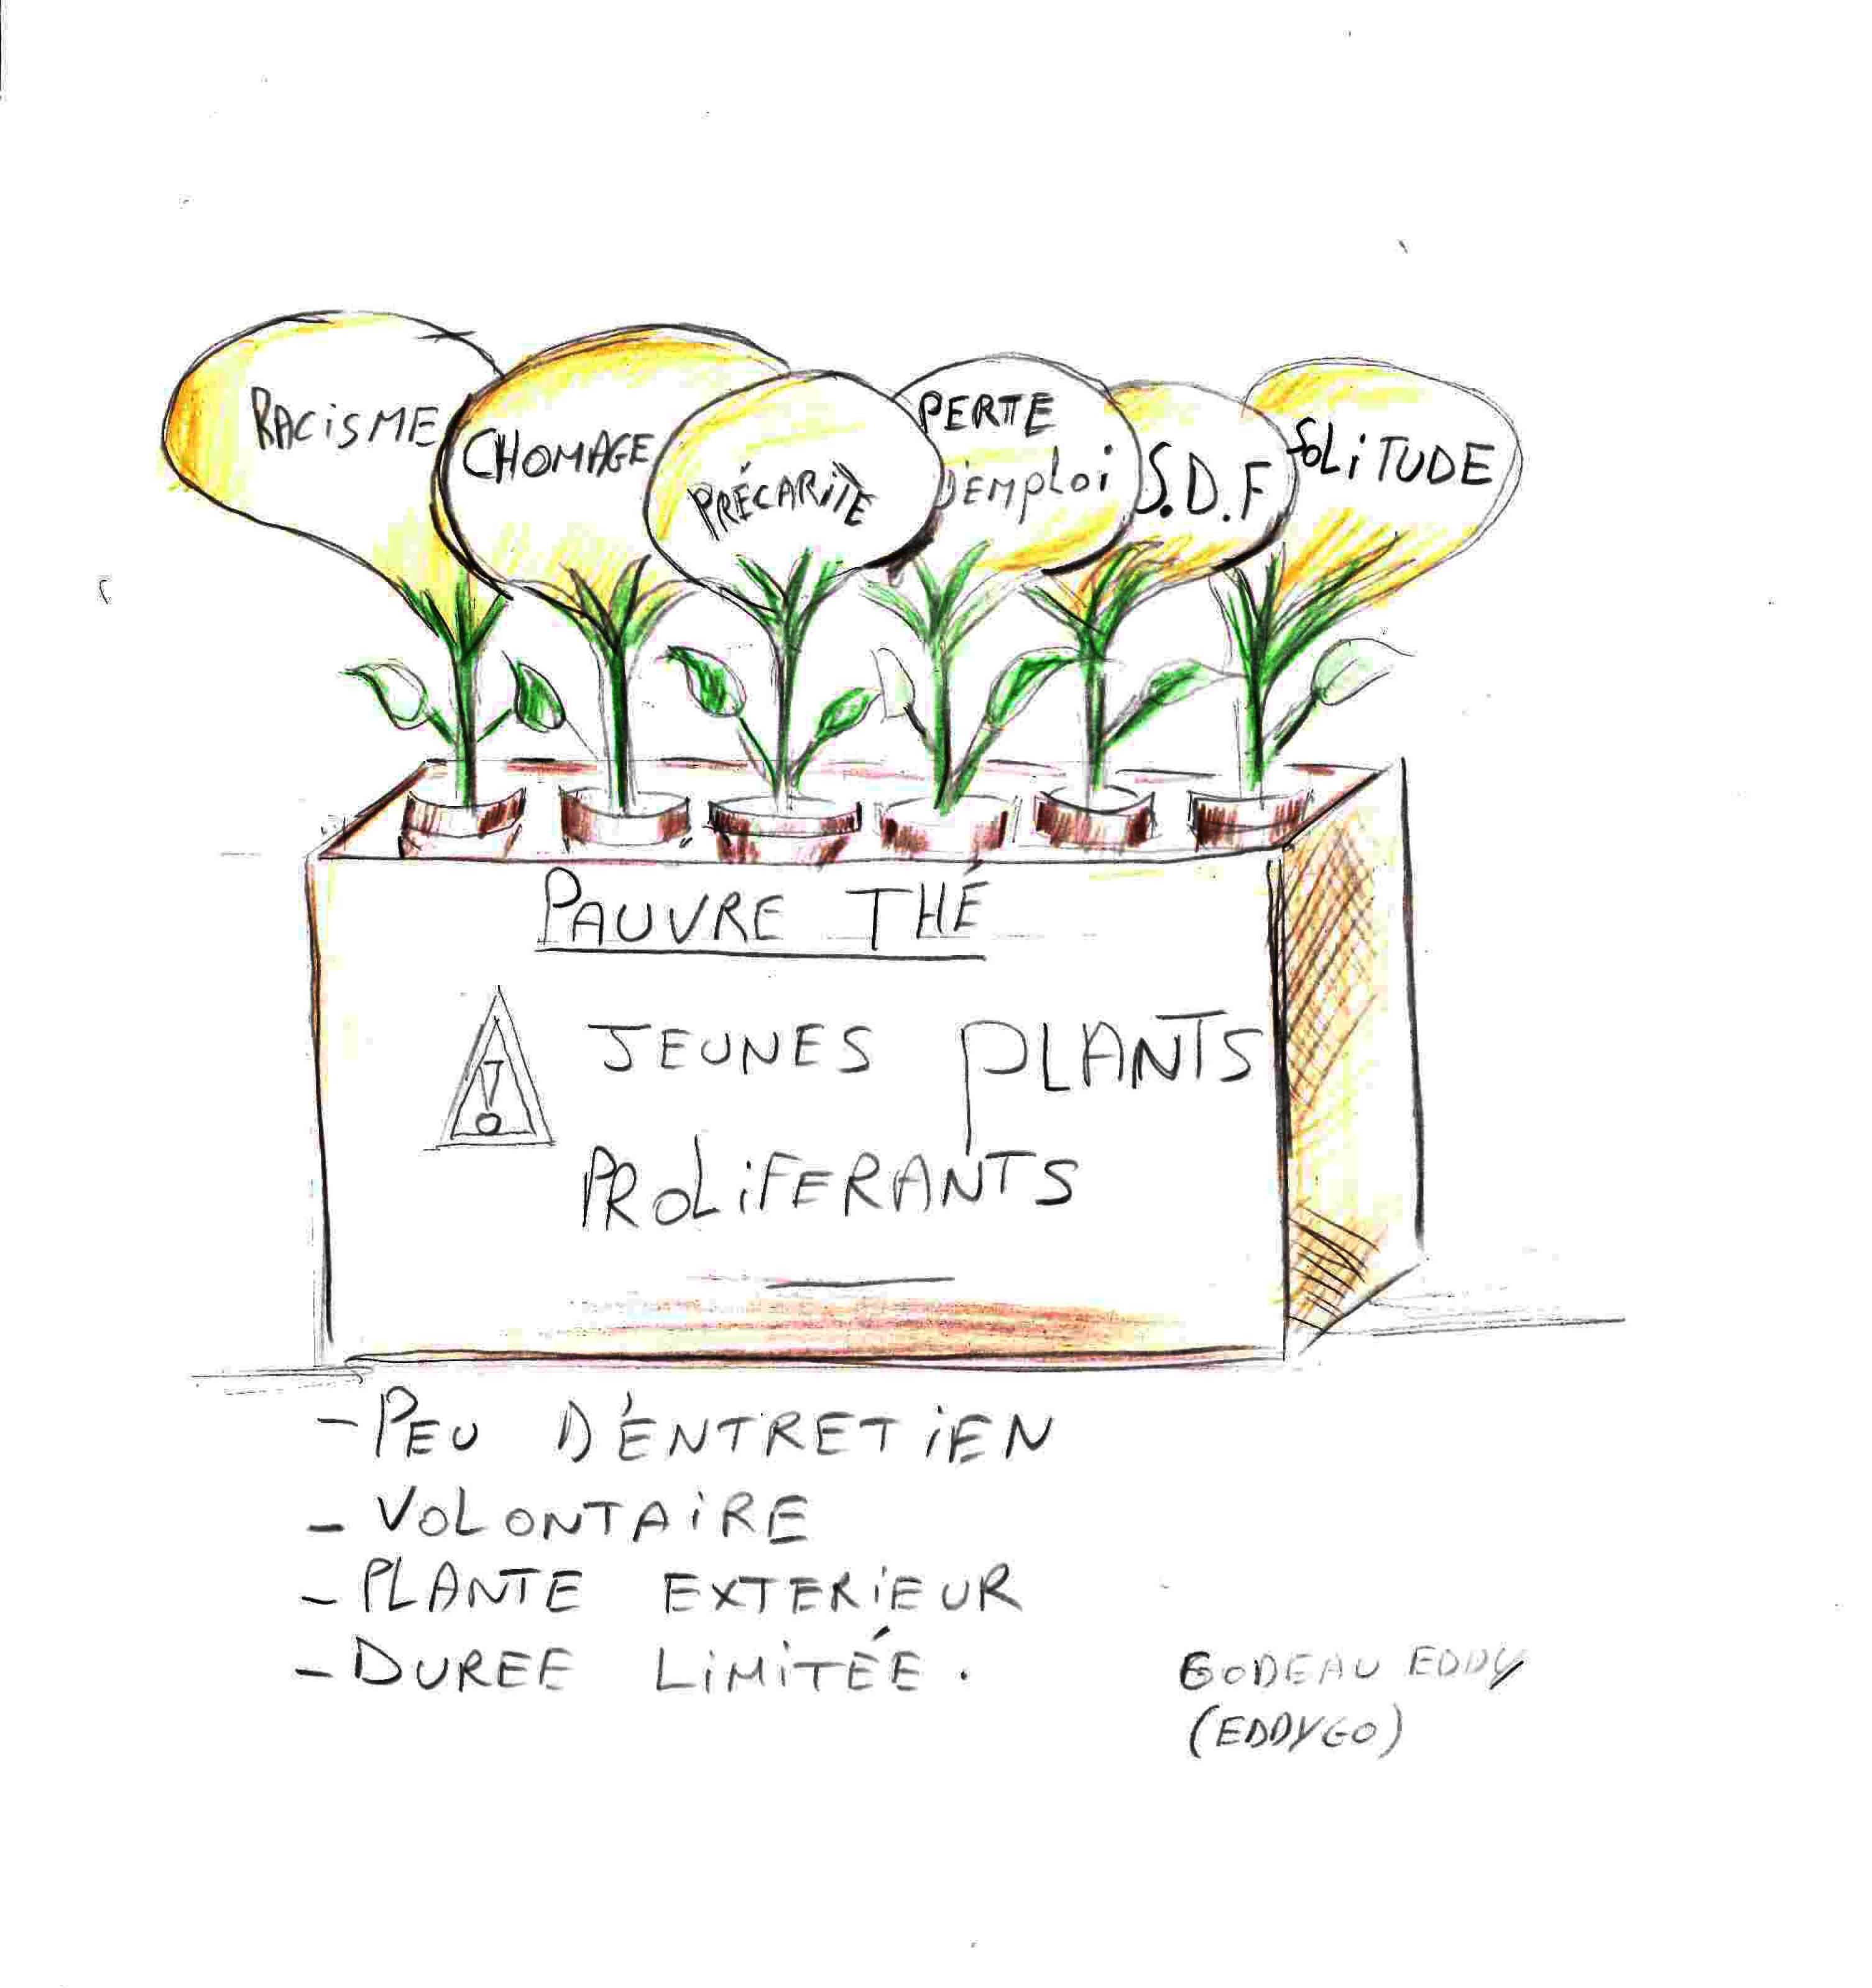 RACiSME
CHOMAGE
PRÉCARiTÉ
PERTE
D'EMPLOi
S.D.F
SOLiTUDE
PAUVRE THÉ
! JEUNES PLANTS
PROLiFERANTS
- PEU D'ÉNTRETiEN
- VOLONTAiRE
- PLANTE EXTERiEUR
- DUREE LiMiTÉE .
GODEAU EDDY
(EDDYGO)